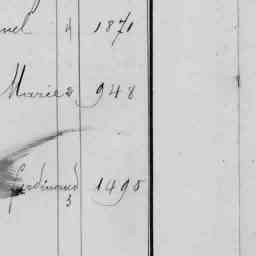 nel 4 1871
Marie 2 948
Ferdinand 3 1498